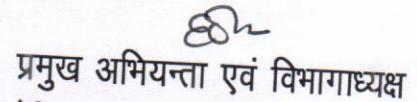 प्रमुख अभियन्ता एवं विभागाध्यक्ष